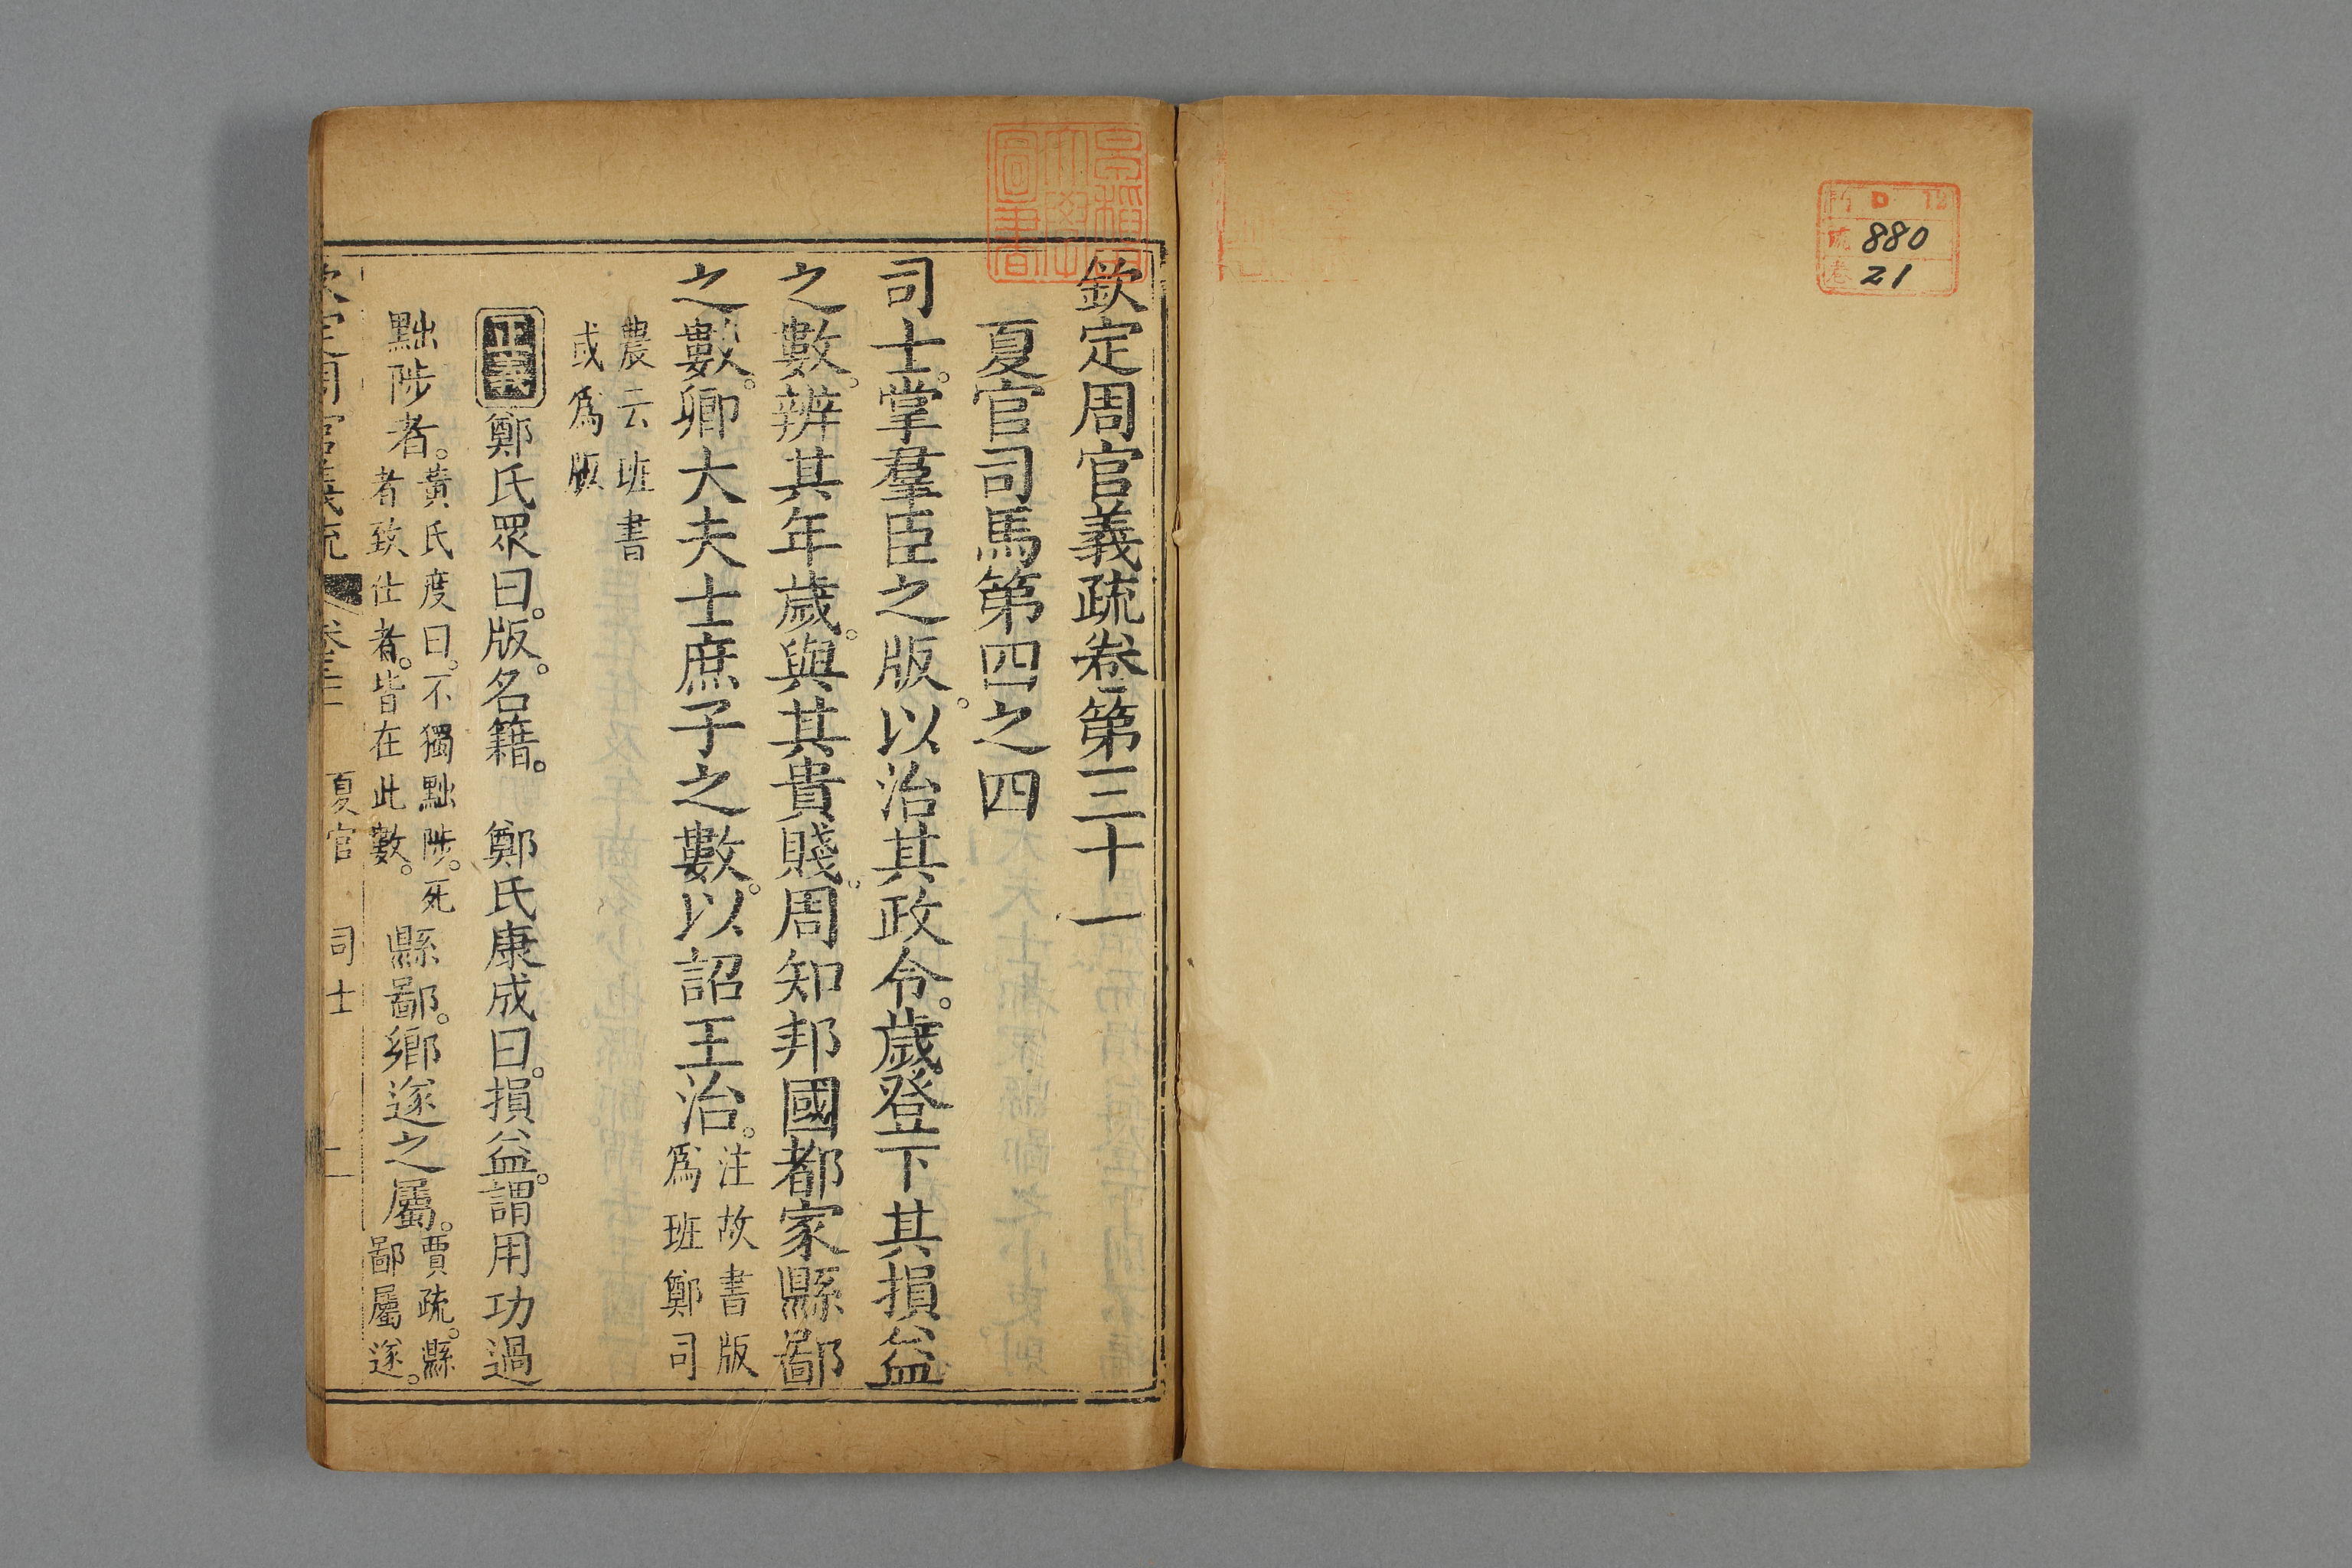 欽定周官義疏卷第三十一
夏官司馬第四之四
司士。掌羣臣之版。以治其政令。歲登下其損益
之數。辨其年歲。與其貴賤。周知邦國都家縣鄙
之數。卿大夫士庶子之數。以詔王治。注故書版
爲班鄭司
農云班書
或爲版
正義鄭氏眾曰。版。名籍。 鄭氏康成曰。損益。謂用功過
黜陟者。黃氏度曰。不獨黜陟。死
者致仕者。皆在此數。
縣鄙。鄉遂之屬。賈疏。縣
鄙屬遂。
欽定周官義疏 卷三十一 夏官 司士 一
早稻田
大學
圖書
D 12
號 880
卷 21